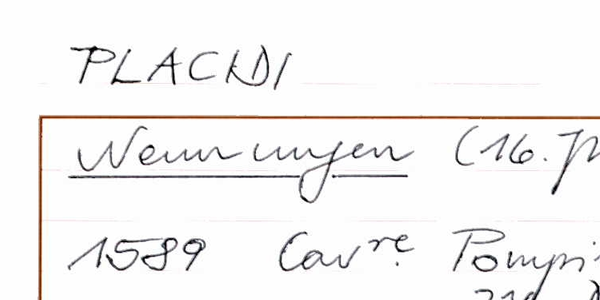 PLACIDI
Nennungen (16. Jh
1589 Cav.re Pompi